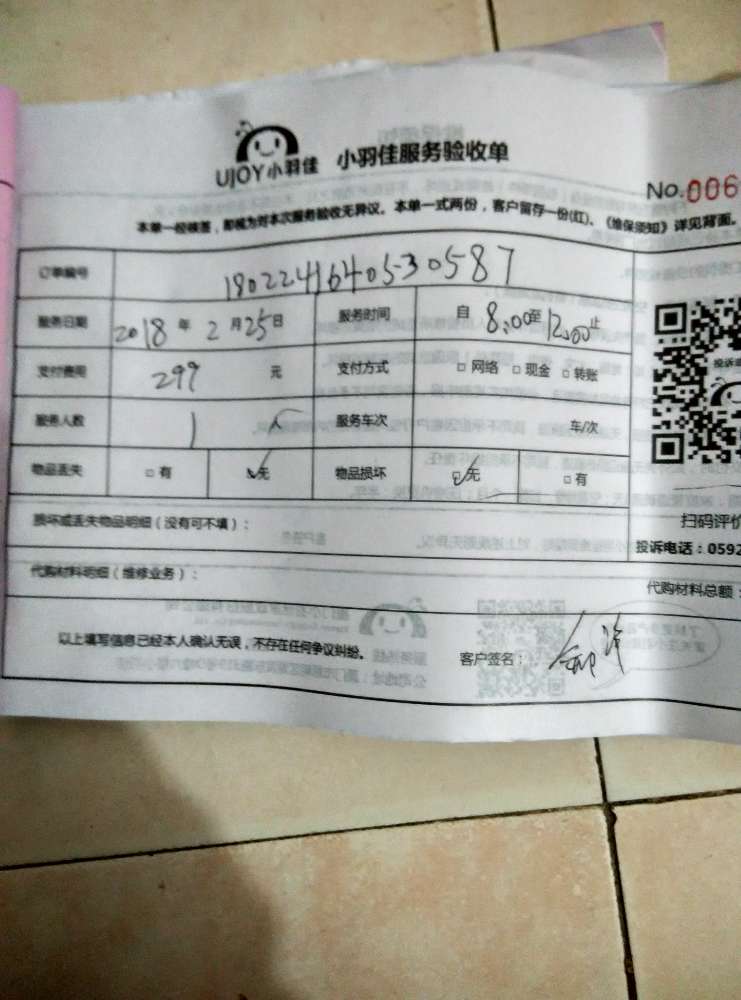 UJOY小羽佳 小羽佳服务验收单
No.006
本单一经核签，即视为对本次服务验收无异议。本单一式两份，客户留存一份(红)、《维保须知》详见背面。
订单编号 1802241640530587
服务日期 2018 年 2 月 25 日 服务时间 自 8:00 至 12:00 止
支付费用 299 元 支付方式 □ 网络 □ 现金 □ 转账
服务人数 1 人 服务车次 车/次
物品丢失 □ 有 ☑ 无 物品损坏 ☑ 无 □ 有
损坏或丢失物品明细（没有可不填）：
扫码评价
投诉电话：0592
代购材料明细（维修业务）：
代购材料总额：
以上填写信息已经本人确认无误，不存在任何争议纠纷。 客户签名：